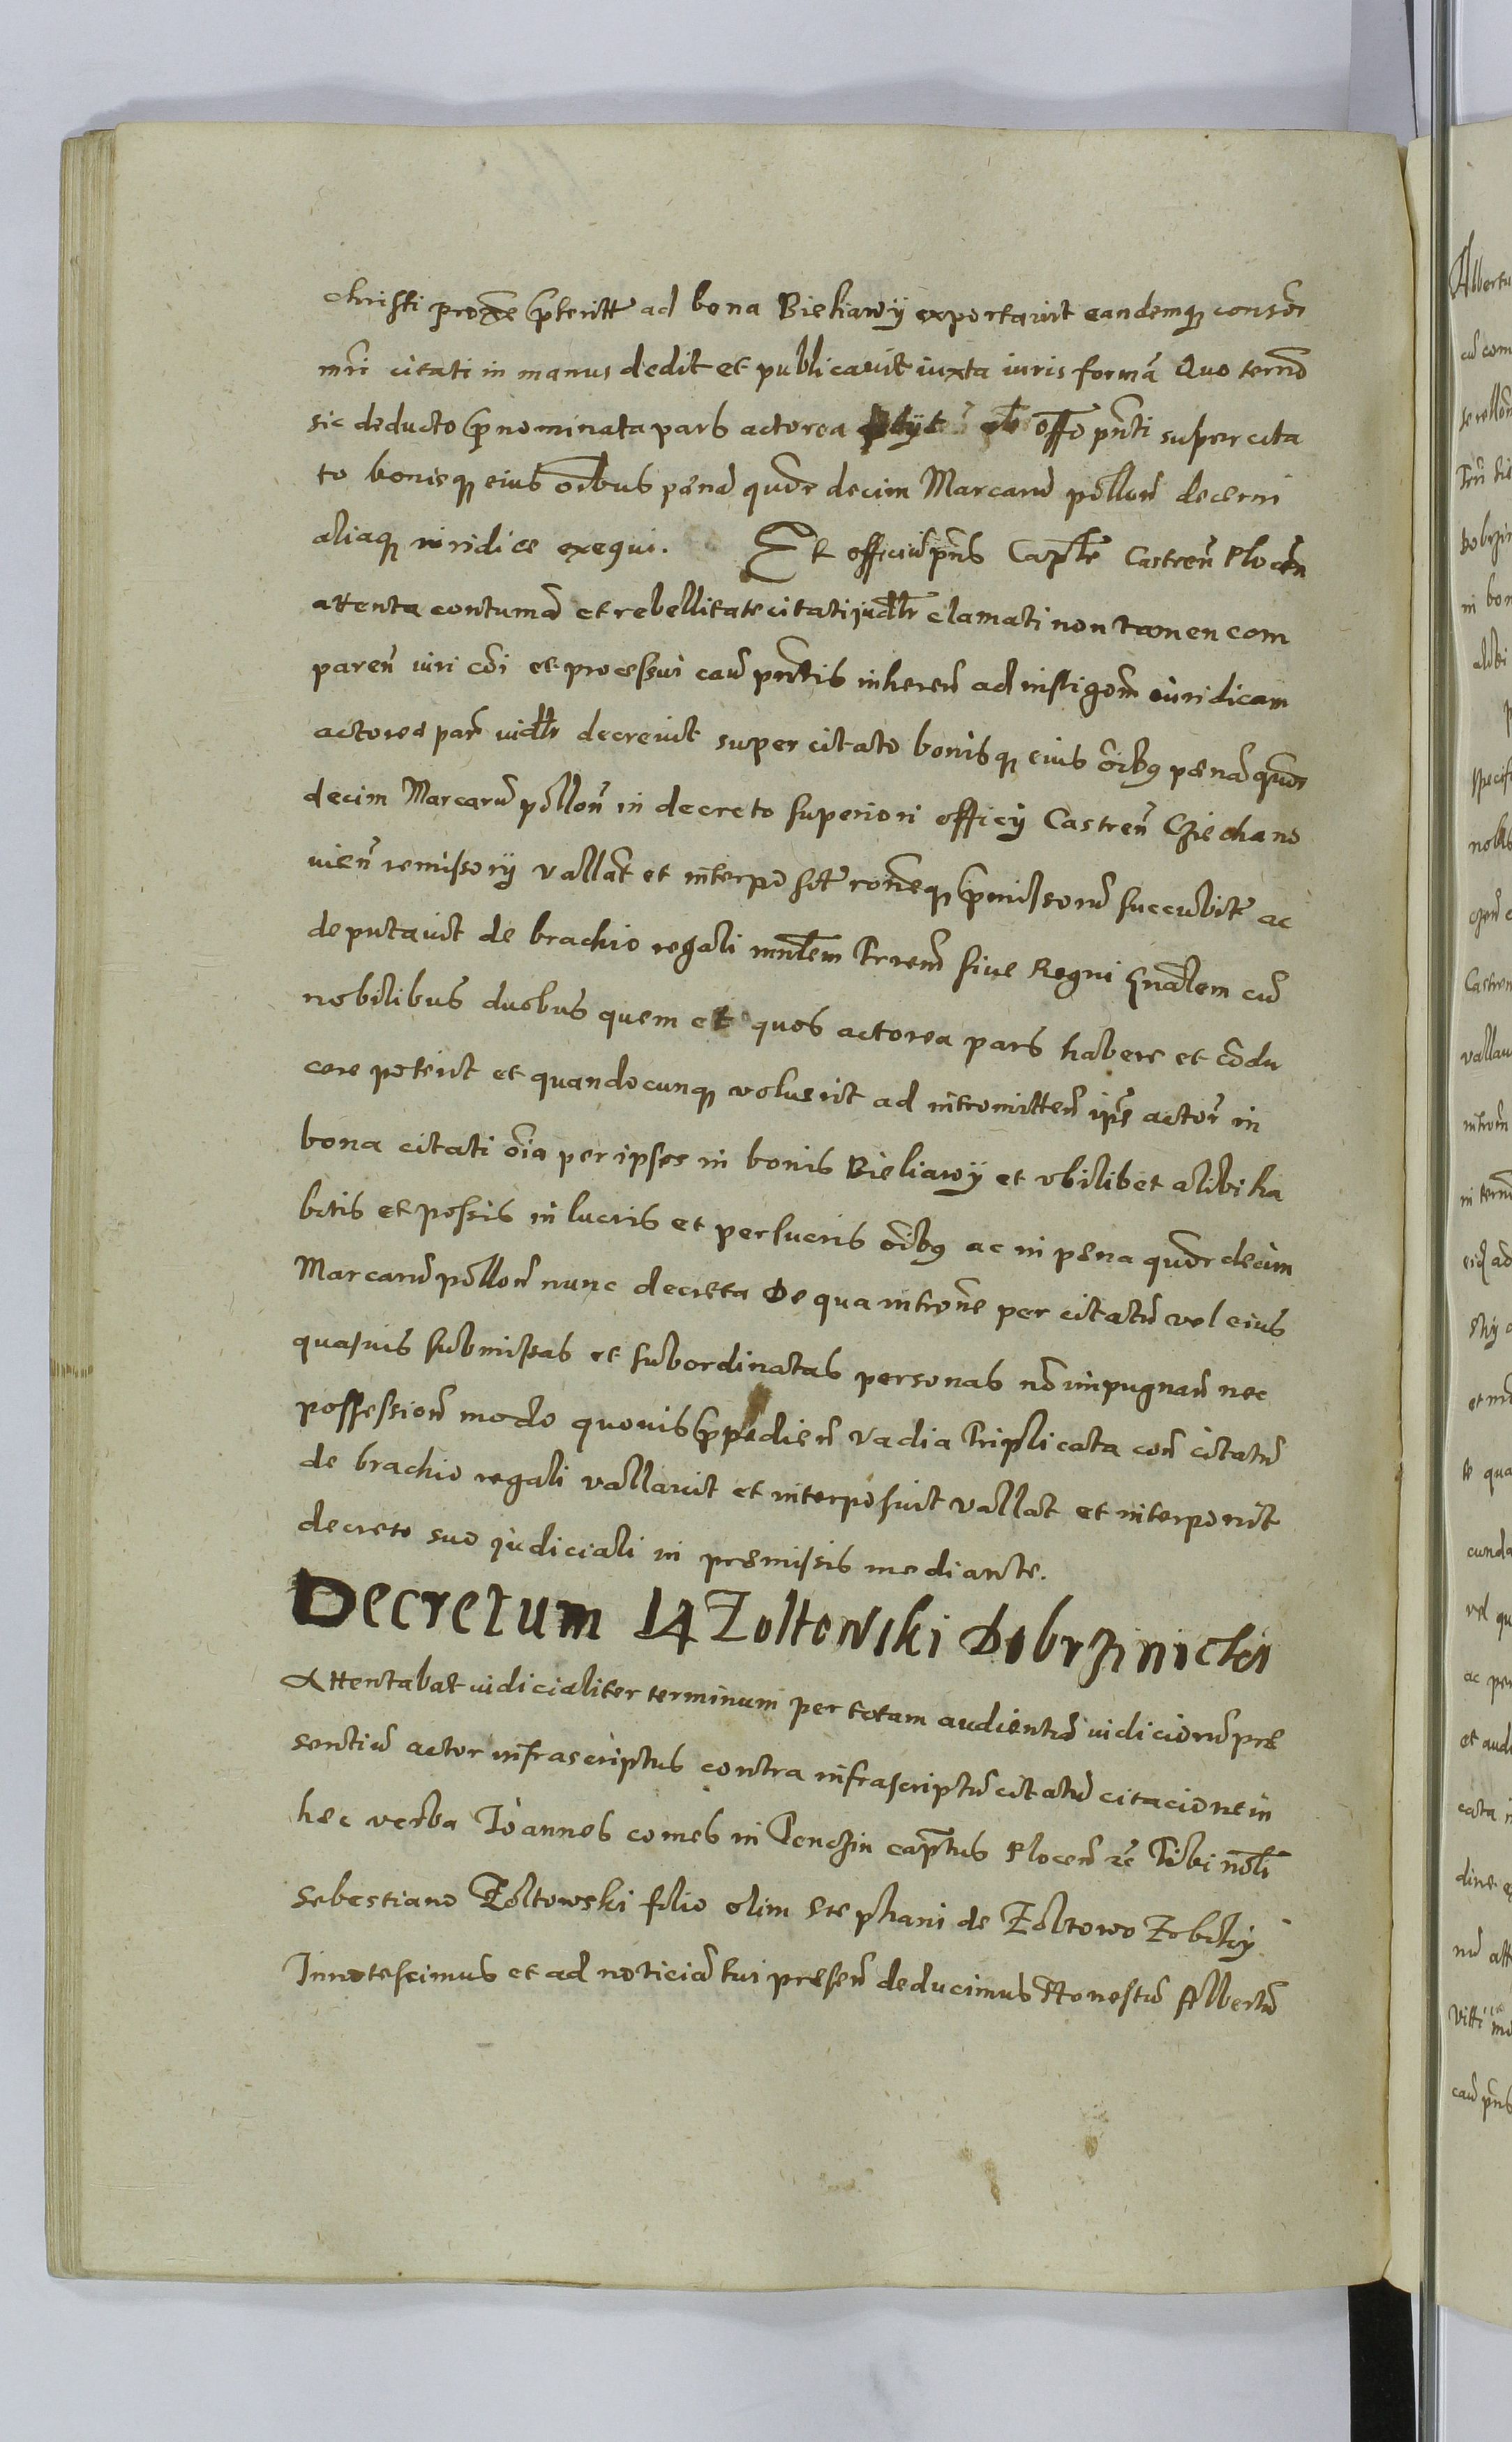 christi proxe preteritt ad bona Bieliawÿ exportavit eandemq consor
mri citati in manus dedit et publicavit iuxta iuris formã Quo termõ
sic deducto prnominata pars actorea offo pnti super cita
to bonisq eius oĩbus pena quor decim Marcarũ pollon decerni
aliaq iuridice exequi. Et officiũ pns Captle Castreñ Plocen
attenta contuma et rebellitate citati judlr clamati non tamen com
pareñ iuri cõi et processui cau pntis inhereñ ad instigom iuridicam
actorea par iudlr decrevit super citato bonisq eius oĩbq penã quor
decim Marcarũ polloñ in decreto superiori officÿ Castreñ Cziechano
vieñ remissorÿ vallat et interposit roneq prmissorũ succubit ac
deputavit de brachio regali mnlem Trrem sive Regni gnalem cũ
nobilibus duobus quem et quos actorea pars habere et cõdu
cere poterit et quandocunq voluerit ad intromitteñ ips actor in
bona citati oĩa per ipsos in bonis Bieliawÿ et ubilibet alibi ha
bitis et possis in lucris et perlucris oĩbq ac in pena quor decim
Marcarũ pollon nunc decreta De qua introne per citatũ vel eius
quasvis submissas et subordinatas personas nõ impugnañ nec
possessioñ modo quovis prpedieñ vadia Triplicata coñ citatũ
de brachio regali vallavit et interposuit vallat et interponit
decreto suo judiciali in premissis mediante.
Decretum 14 Zoltowski Dobrzinickei
Attentabat iudicialiter terminum per totam audientiã iudiciorũ pre
sentiũ actor infrascriptus contra infrascriptũ citatũ citacione in
hec verba Joannes comes in Tenczin captus Ploceñ rc Tibi nobli
Sebestiano Zoltowski filio olim Stephani de Zoltowo
Innotescimus et ad noticiã tui preseñ deducimus Honestũ Albertũ